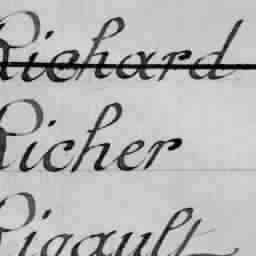 Richard
Richer
Rigault